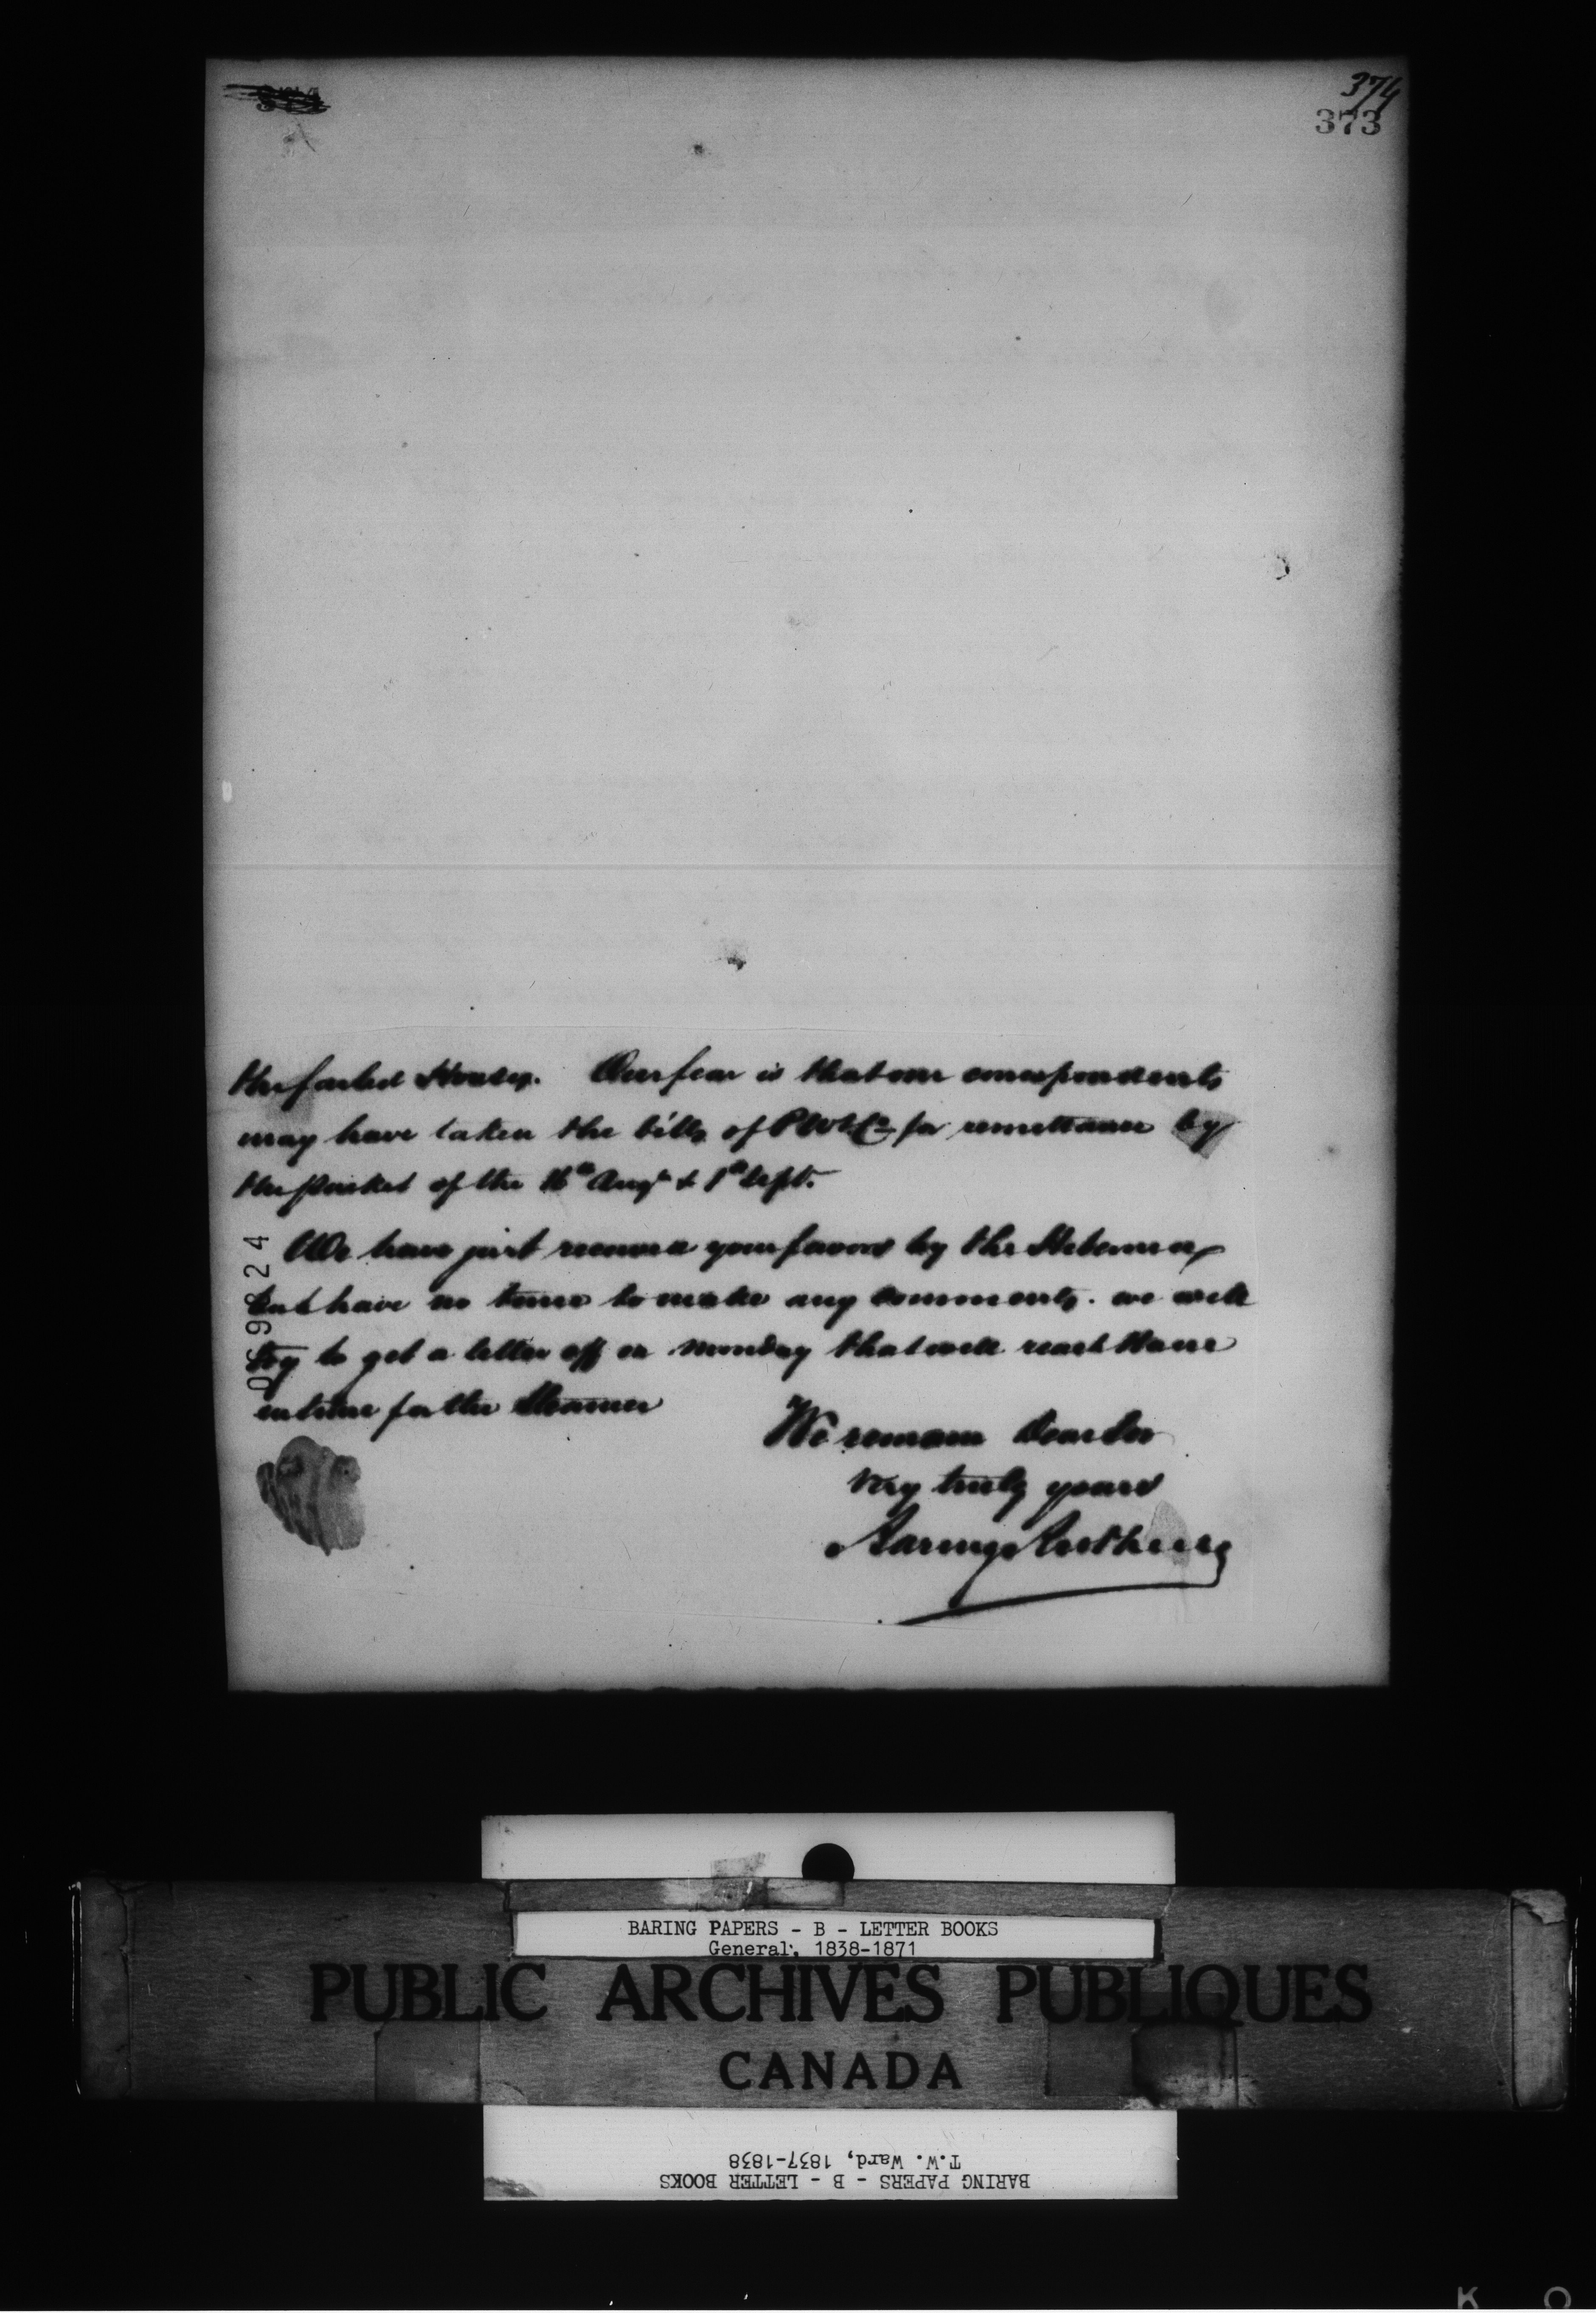 374
373
the failed Houses. Our fear is that our correspondents
may have taken the bills of PW&Co for remittance by
the packet of the 16th Augt & 1st Sept.
We have just received your favors by the Hibernia,
but have no time to make any comments. we will
try to get a letter off on Monday that will reach Havre
in time for the Steamer
We remain Dear Sir
Very truly yours
Baring Brothers
BARING PAPERS - B - LETTER BOOKS
General, 1838-1871
PUBLIC ARCHIVES PUBLIQUES
CANADA
BARING PAPERS - B - LETTER BOOKS
T.W. Ward, 1837-1838
K O